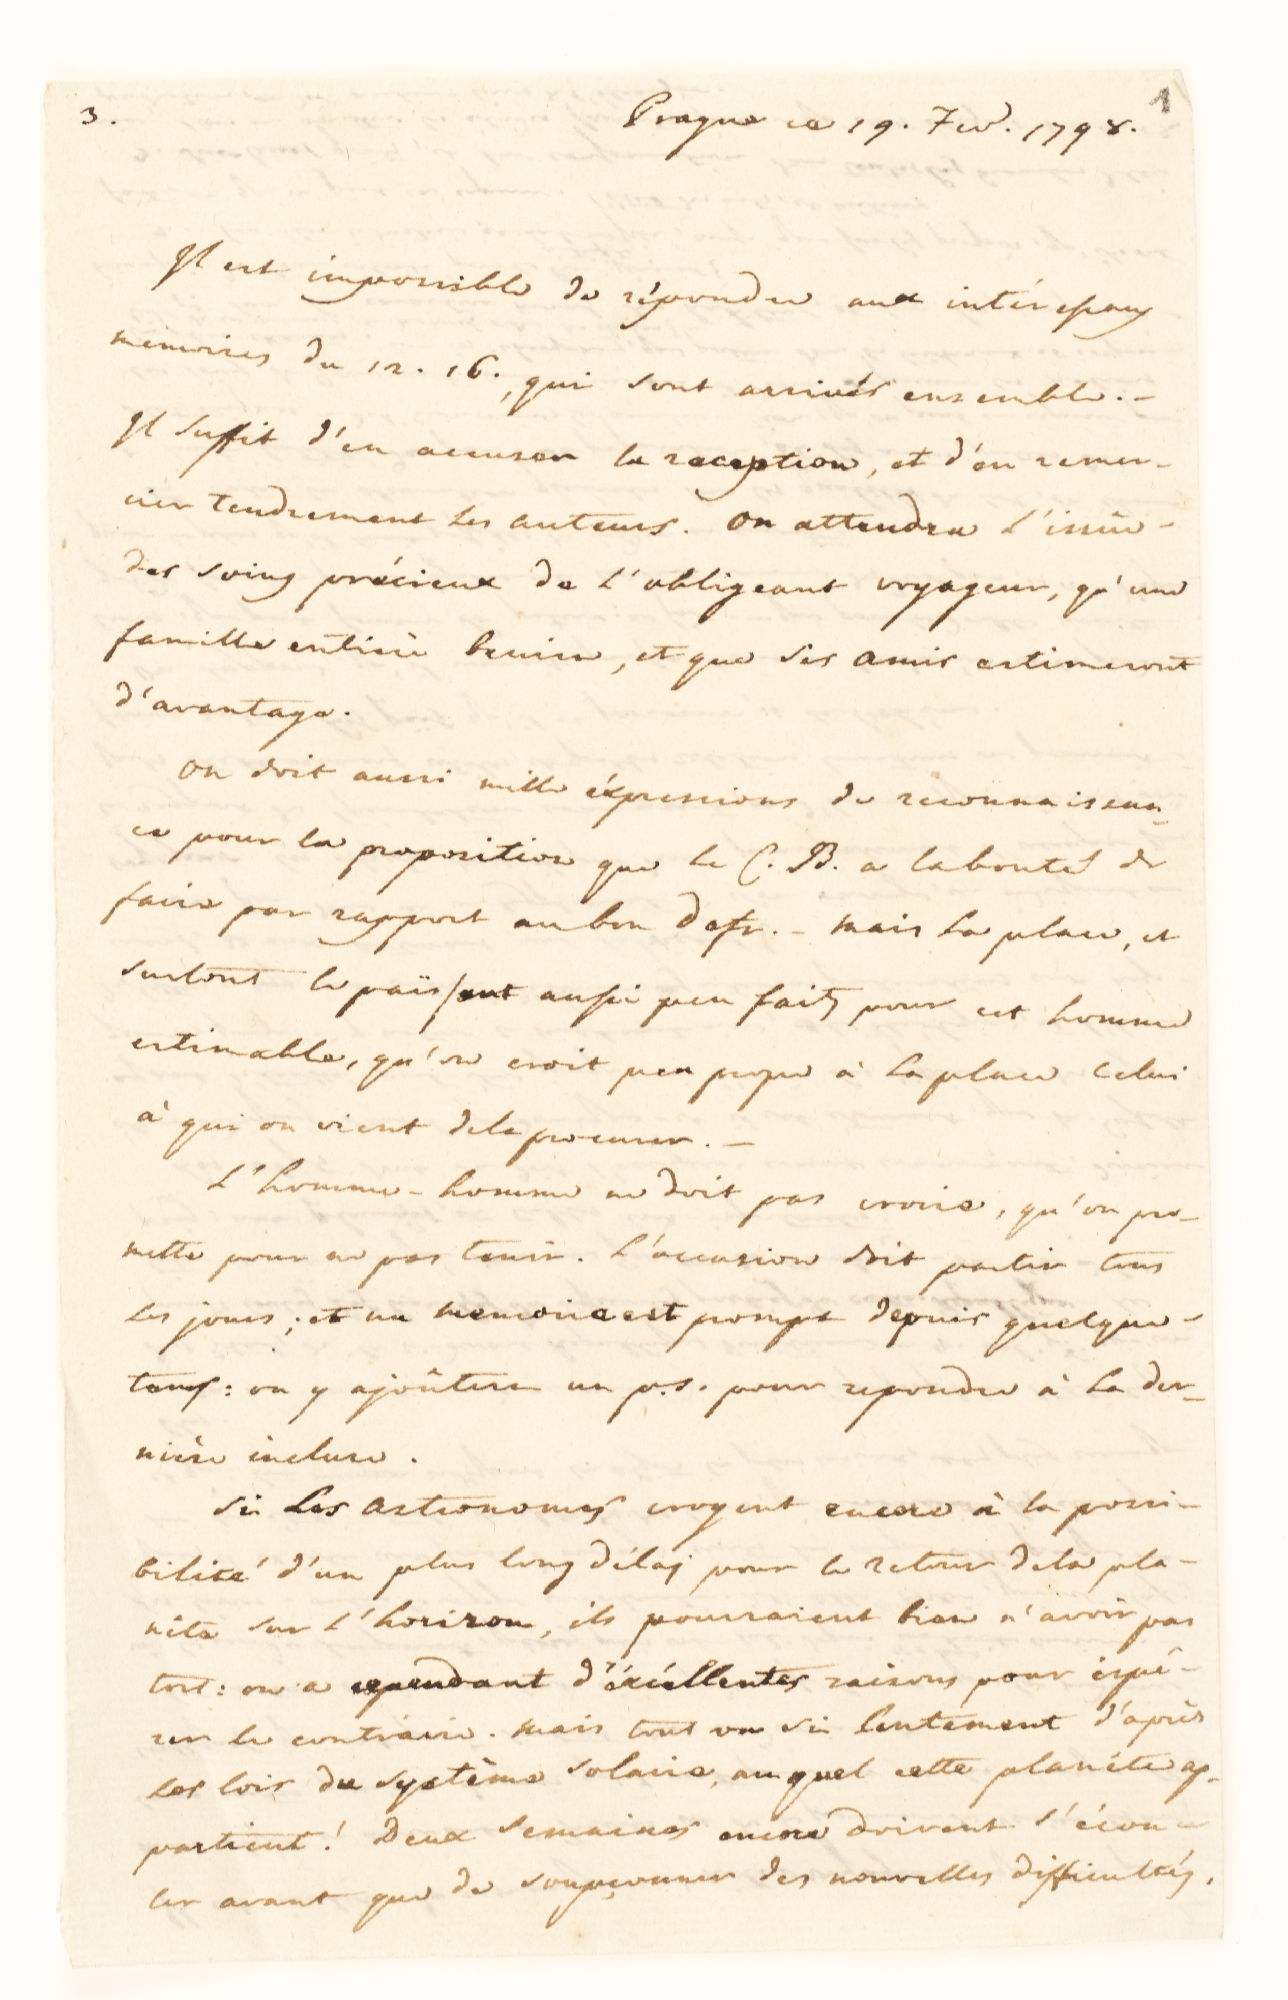 3.
1
Prague ce 19. Fev. 1798.
Il est impossible de répondre aux intéressans
mémoires du 12. 16., qui sont arrivés ensemble. –
Il suffit d'en accuser la reception, et d'en remer-
cier tendrement les auteurs. On attendra l'issüe
des soins précieux de l'obligeant voyageur, qu'une
famille entière benira, et que ses amis estimeront
d'avantage.
On doit aussi mille éxpressions de reconnaissan-
ce pour la proposition que le C. B. a la bonté de
faire par rapport au bon Defr. – mais la place, et
surtout le païs sont aussi peu faits pour cet homme
estimable, qu'on croit peu propre à la place celui
à qui on vient de la procurer. –
L'homme-homme ne doit pas croire, qu'on pro-
mette pour ne pas tenir. L'occasion doit partir tous
les jours; et un memoire est prompt depuis quelque
tems: on y ajoûtera un p.s. pour repondre à la der-
nière incluse.
Si les astronomes croyent encore à la possi-
bilité d'un plus long délaj pour le retour de la pla-
nète sur l'horizon, ils pourraient bien n'avoir pas
tort: on a cependant d'éxcéllentes raisons pour espé-
rer le contraire. mais tout va si lentement d'après
les lois du système solaire, auquel cette planète ap-
partient! Deux semaines encore doivent s'écou-
ler avant que de soupçonner des nouvelles difficultés,